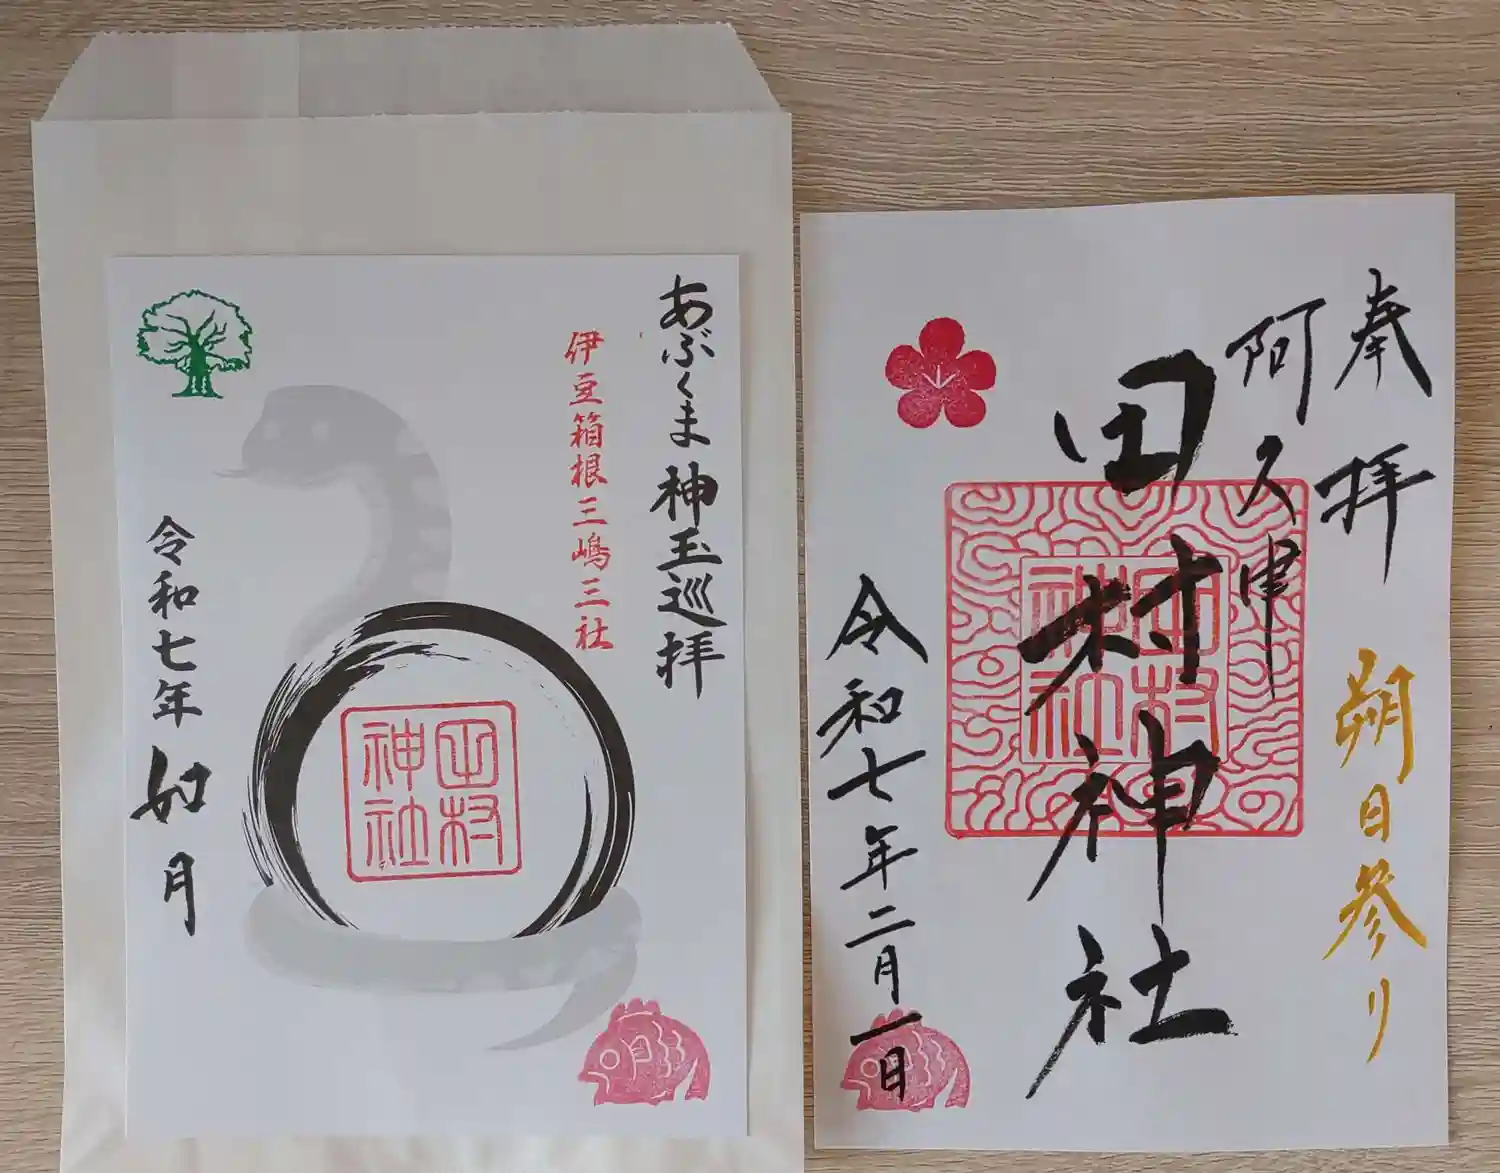 奉拝
朔日参り
阿久津
田村神社
田村
神社
令和七年二月一日
あぶくま神玉巡拝
伊豆箱根三嶋三社
田村
神社
令和七年如月